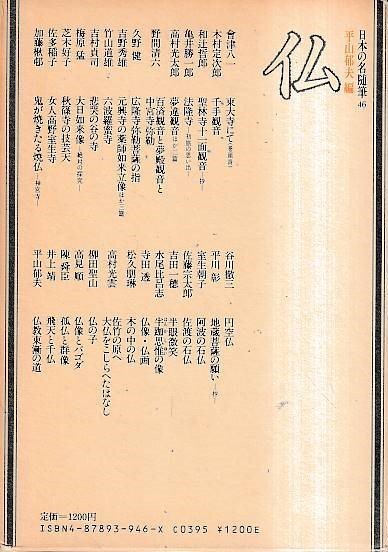 日本の名随筆 46
平山郁夫 編
仏
會津八一
木村定次郎
和辻哲郎
亀井勝一郎
高村光太郎
野間清六
久野 健
吉野秀雄
竹山道雄
吉村貞司
梅原 猛
芝木好子
佐多稲子
加藤楸邨
東大寺にて
千手観音
聖林寺十一面観音 —抄—
法隆寺 —初旅の思い出—
夢違観音 ほか二篇
百済観音と夢殿観音と
中宮寺弥勒
広隆寺弥勒菩薩の指
元興寺の薬師如来立像 ほか三篇
六波羅蜜寺
悲哭の谷の寺
大日如来像 —絶対の探究—
秋篠寺の技芸天
女人高野室生寺
鬼が焼きたる焼仏 —神宮寺—
谷川徹三
平川 彰
室生朝子
佐藤宗太郎
吉田一穂
水尾比呂志
寺田 透
松久朋琳
高村光雲
柳田聖山
高見 順
陳 舜臣
井上 靖
平山郁夫
円空仏
地蔵菩薩の願い —抄—
阿波の石仏
佐渡の石仏
半眼微笑
半跏思惟の像
仏像・仏画
木の中の仏
佐竹の原へ
大仏をこしらへたはなし
仏の子
仏像とパゴダ
孤仏と群像
飛天と千仏
仏教東漸の道
定価=1200円
ISBN4-87893-946-X C0395 ¥1200E